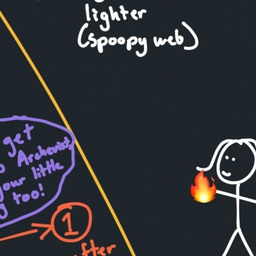 lighter
(spoopy web)
get
Archevist,
your little
too!
1
after